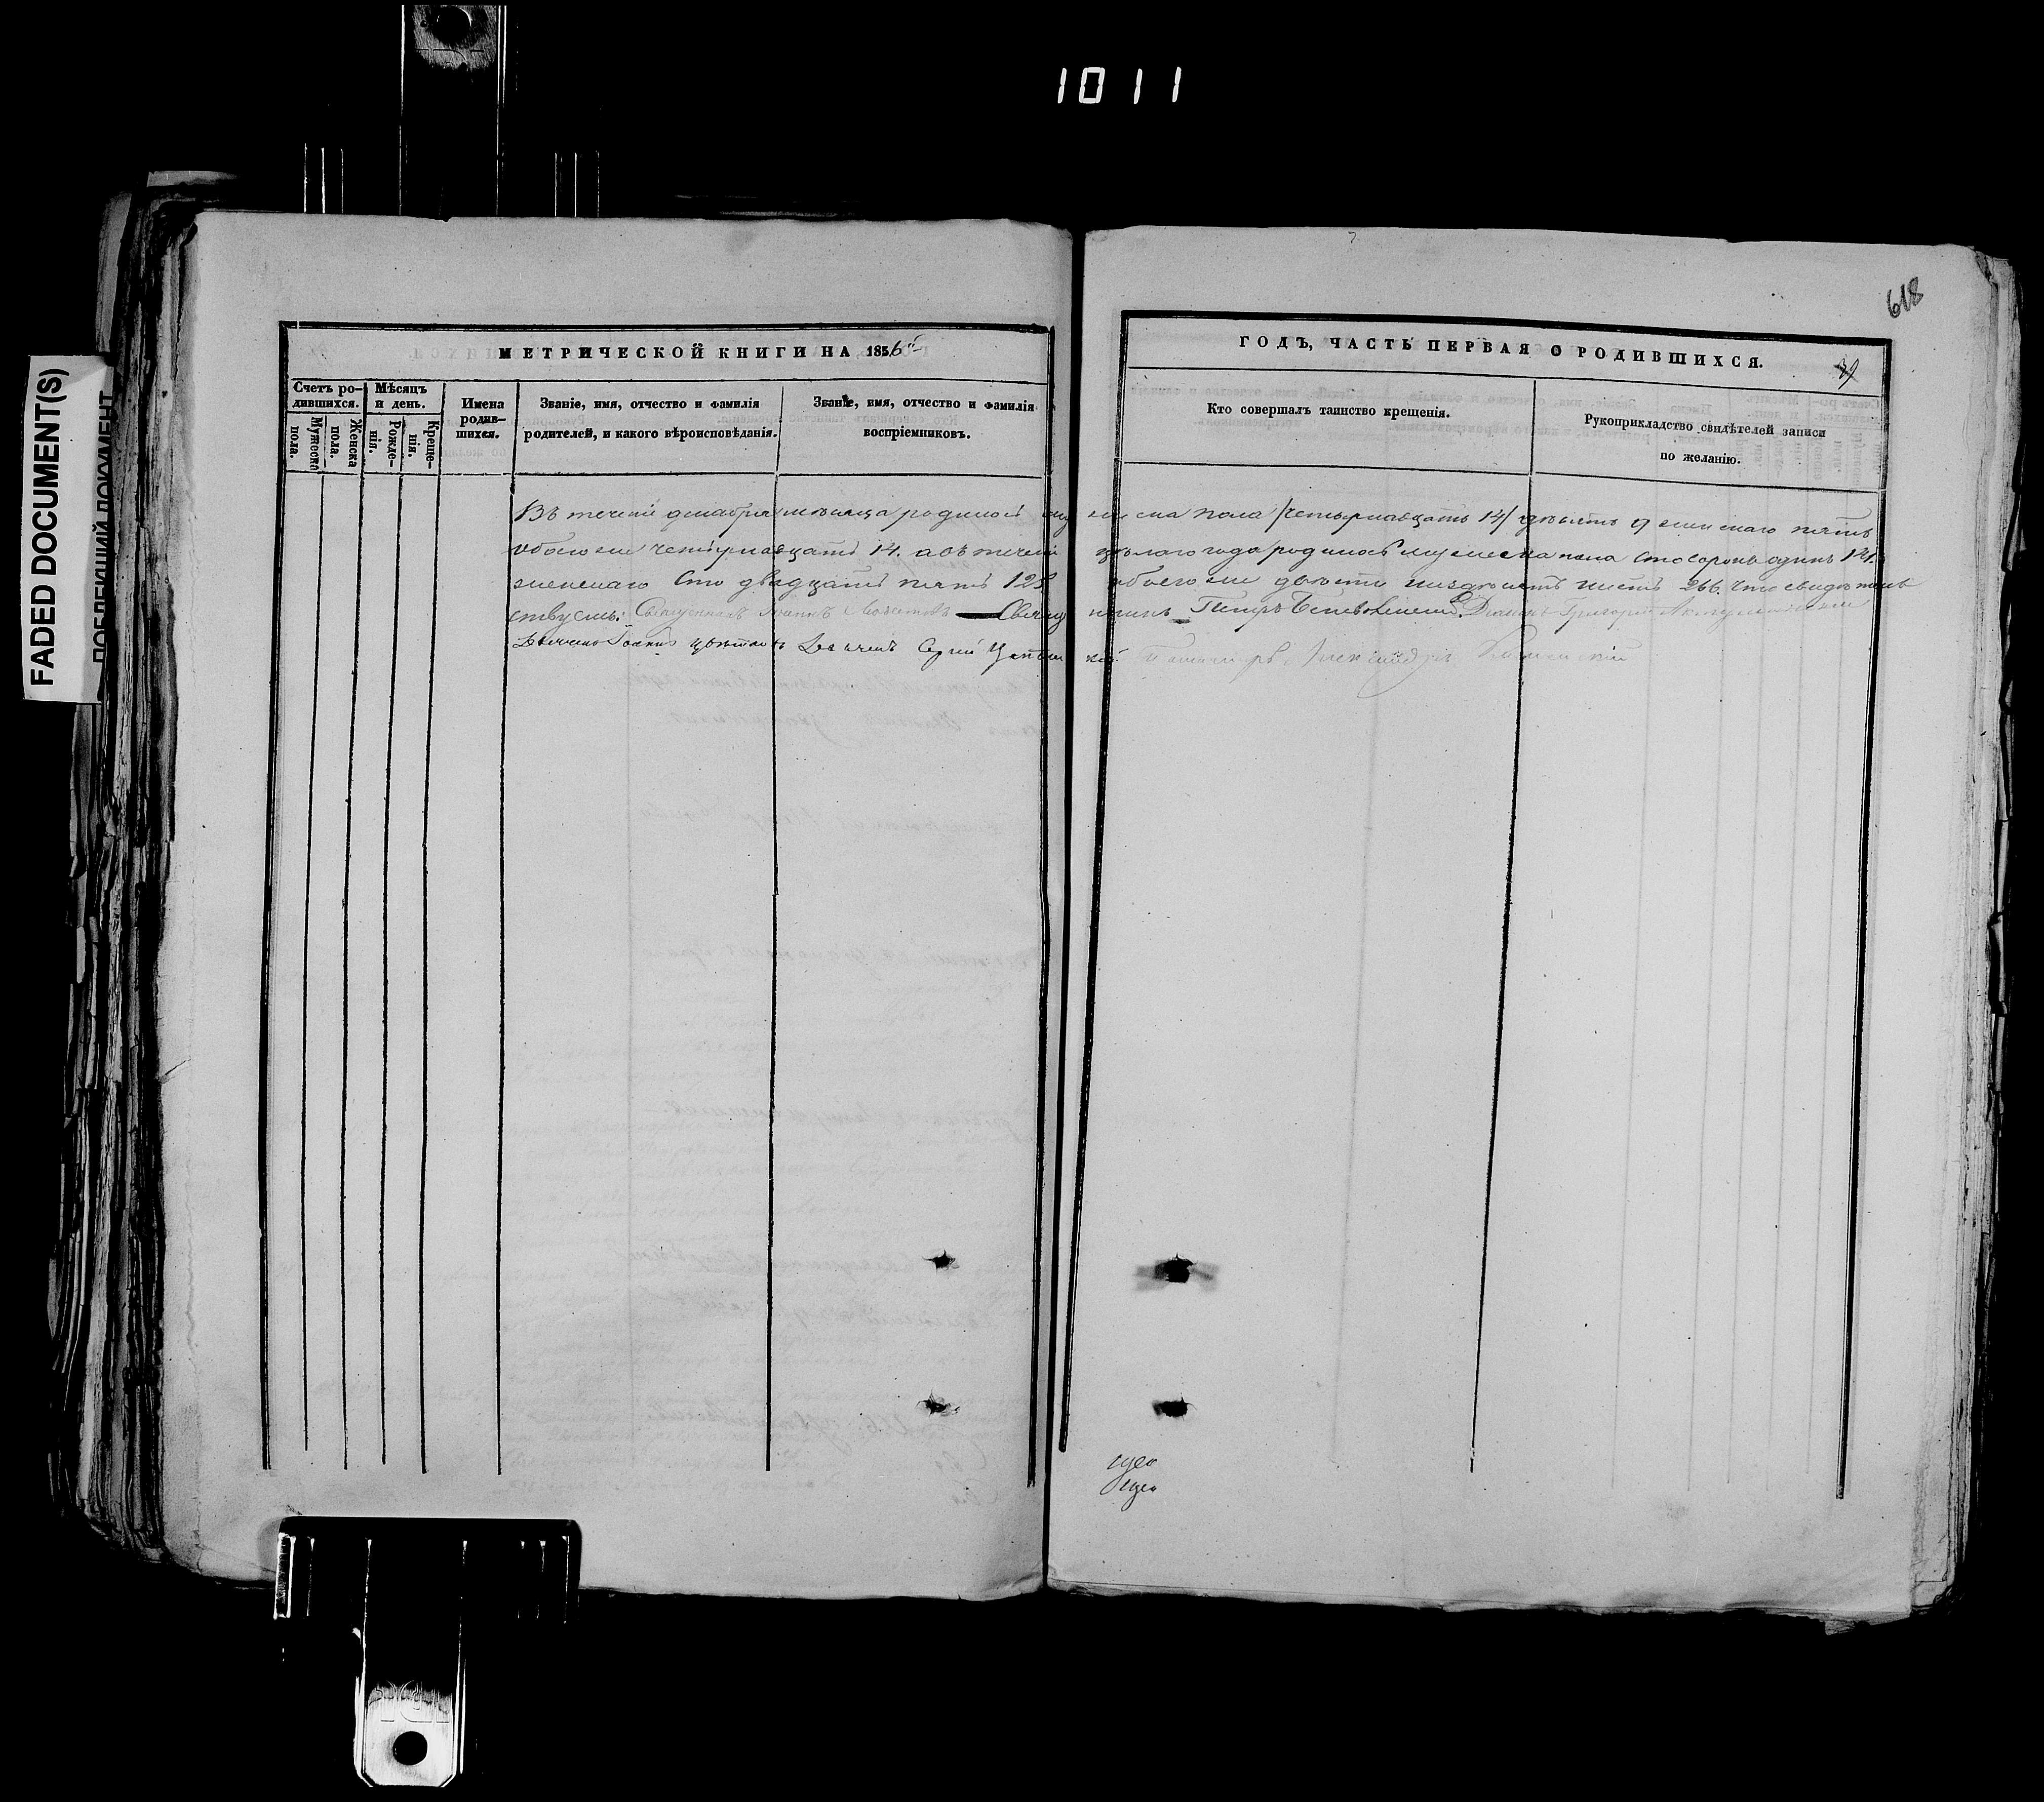 1011
FADED DOCUMENT(S)
618
МЕТРИЧЕСКОЙ КНИГИ НА 1856й
ГОДЪ, ЧАСТЬ ПЕРВАЯ О РОДИВШИХСЯ.
39
Счетъ ро-
дившихся.
Мужеска
пола.
Женска
пола.
Мѣсяцъ
и день.
Рожде-
нія.
Креще-
нія.
Имена
родив-
шихся.
Званіе, имя, отчество и фамилія
родителей, и какого вѣроисповѣданія.
Званіе, имя, отчество и фамилія
воспріемниковъ.
Кто совершалъ таинство крещенія.
Рукоприкладство свидѣтелей записи
по желанію.
Въ теченіи декабря мѣсяца родилось му
жеска пола девять 9 женскаго пять
обоего же четырнадцать 14. а въ теченіи
цѣлаго года родилось мужеска пола сто сорокъ одинъ 141.
женскаго сто двадцать пять 125
обоего же двѣсти шездѣсятъ шесть 266. Что свидѣтель
ствуемъ: Священникъ Іоаннъ Свящ
Петръ Діаконъ Григорій
Дьячекъ Іоаннъ Цвѣтковъ Дьячекъ Сергій
кій Пономарь Александръ